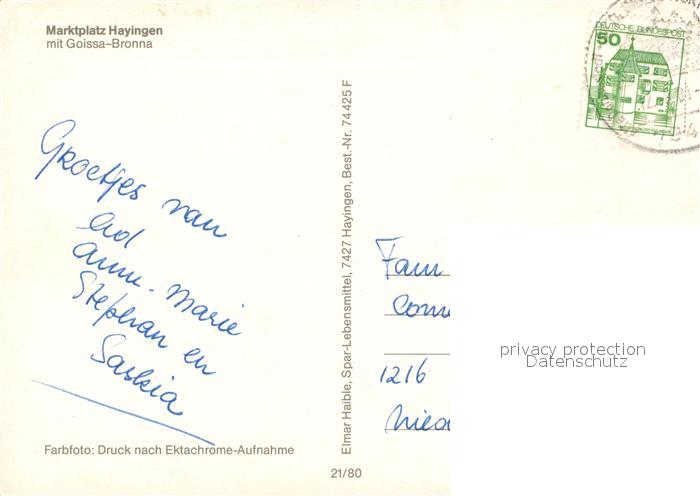 Marktplatz Hayingen
mit Goissa-Bronna
DEUTSCHE BUNDESPOST
50
Groetjes van
Ad
Anne-Marie
Stephan en
Saskia
Elmar Haible, Spar-Lebensmittel, 7427 Hayingen, Best.-Nr. 74 425 F
Fam
1216
privacy protection
Datenschutz
Farbfoto: Druck nach Ektachrome-Aufnahme
21/80